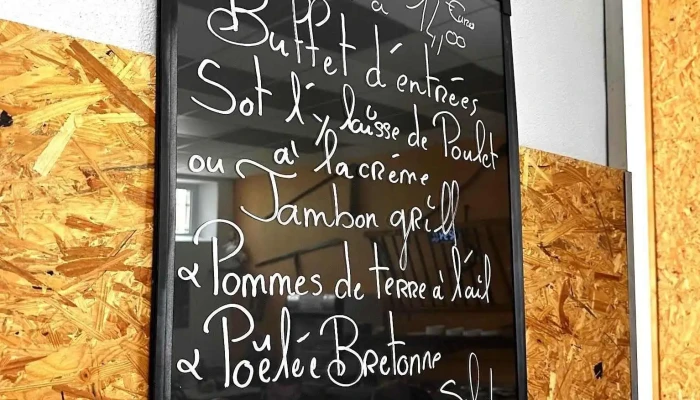 à 14,00 Euro
Buffet d'entrées
Sot l'y laisse de Poulet
à la crème
ou Jambon grill
& Pommes de terre à l'ail
& Poêlée Bretonne